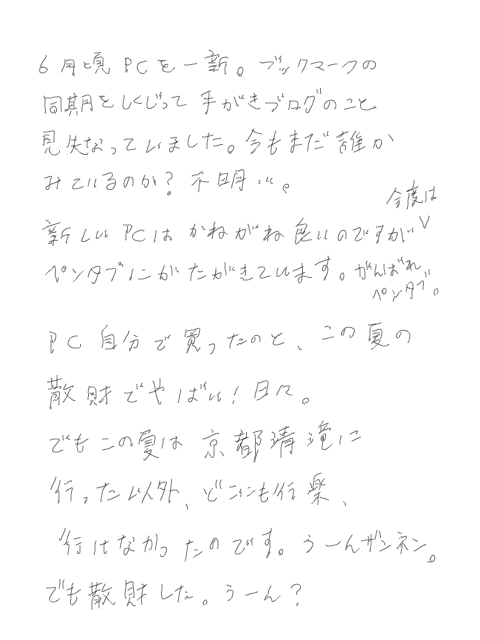 6月頃PCを一新。ブックマークの
同期をしくじって手がきブログのこと
見失なっていました。今もまだ誰か
みているのか?不明…。
新しいPCはかねがね良いのですが
今度は
ペンタブにがたがきています。がんばれ
ペンタブ。
PC自分で買ったのと、この夏の
散財でやばい!日々。
でもこの夏は京都清滝に
行った以外、どこにも行楽、
行けなかったのです。うーんザンネン。
でも散財した。うーん?